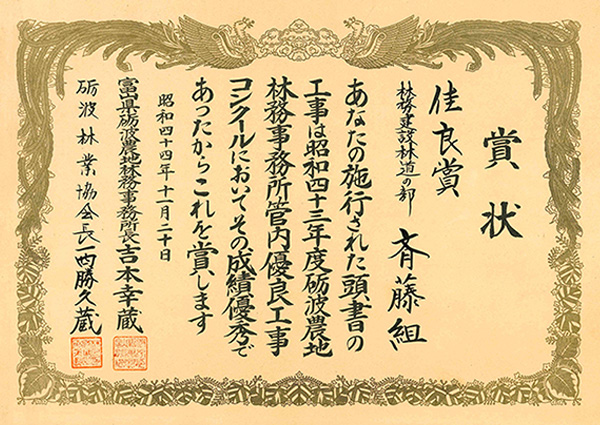 賞状
佳良賞
林務建設林道の部
斉藤組
あなたの施行された頭書の
工事は昭和四十三年度砺波農地
林務事務所管内優良工事
コンクールにおいてその成績優秀で
あったからこれを賞します
昭和四十四年十一月二十日
富山県砺波農地林務事務所長吉本幸蔵
砺波林業協会長西勝久蔵